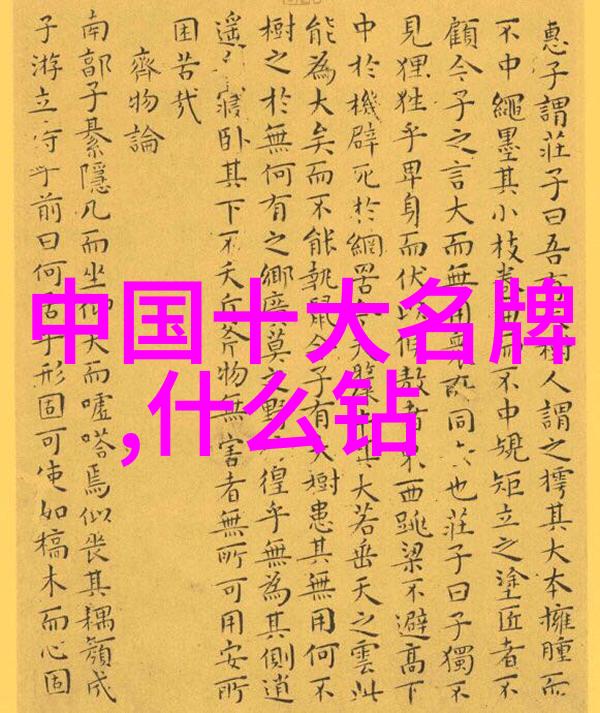 中国十大名牌
,什么钻
惠子謂莊子曰吾樹人謂之樗其大本擁腫而
不中繩墨其小枝而不中規矩立之塗匠者不
顧今子之言大而無用所同也莊子曰子獨不
見狸狌乎卑身而伏以候敖者西跳梁不避高下
中於機辟死於網罟大若垂天之雲此
能為大矣而不能執鼠今子有大樹患其無用何不
樹之於無何有之鄉廣莫之野徨乎無為其側逍
遙寢卧其下不夭斤斧物無害者無所可用安所
困苦哉
齊物論
南郭子綦隱几而坐仰天而噓嗒焉似喪其耦顏成
子游立侍乎前曰何居乎形固可使如槁木而心固